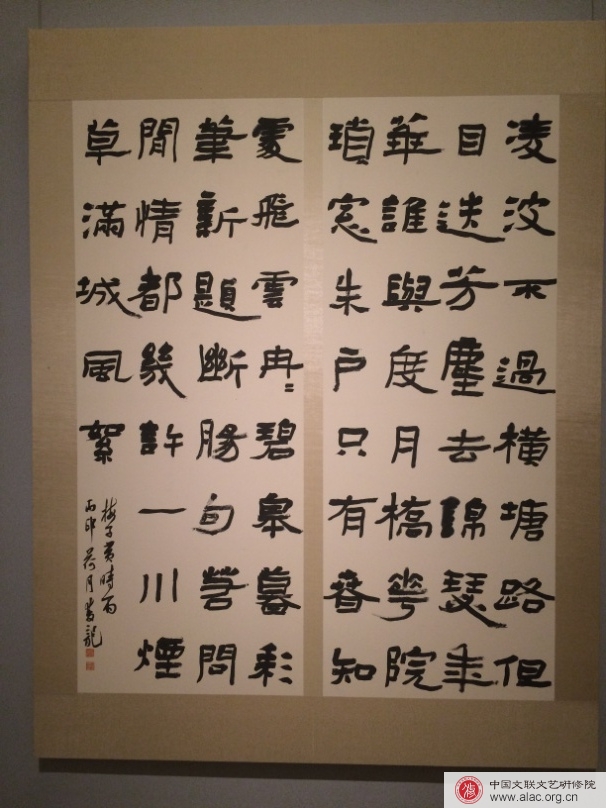 凌波不過橫塘路但
目送芳塵去錦瑟年
華誰與度月橋花院
瑣窓朱戶只有春知
處飛雲冉〻碧皋暮彩
筆新題斷腸句若問
閒情都幾許一川煙
草滿城風絮
梅子黃時雨
丙申荷月龍
中国文联文艺研修院
www.alac.org.cn